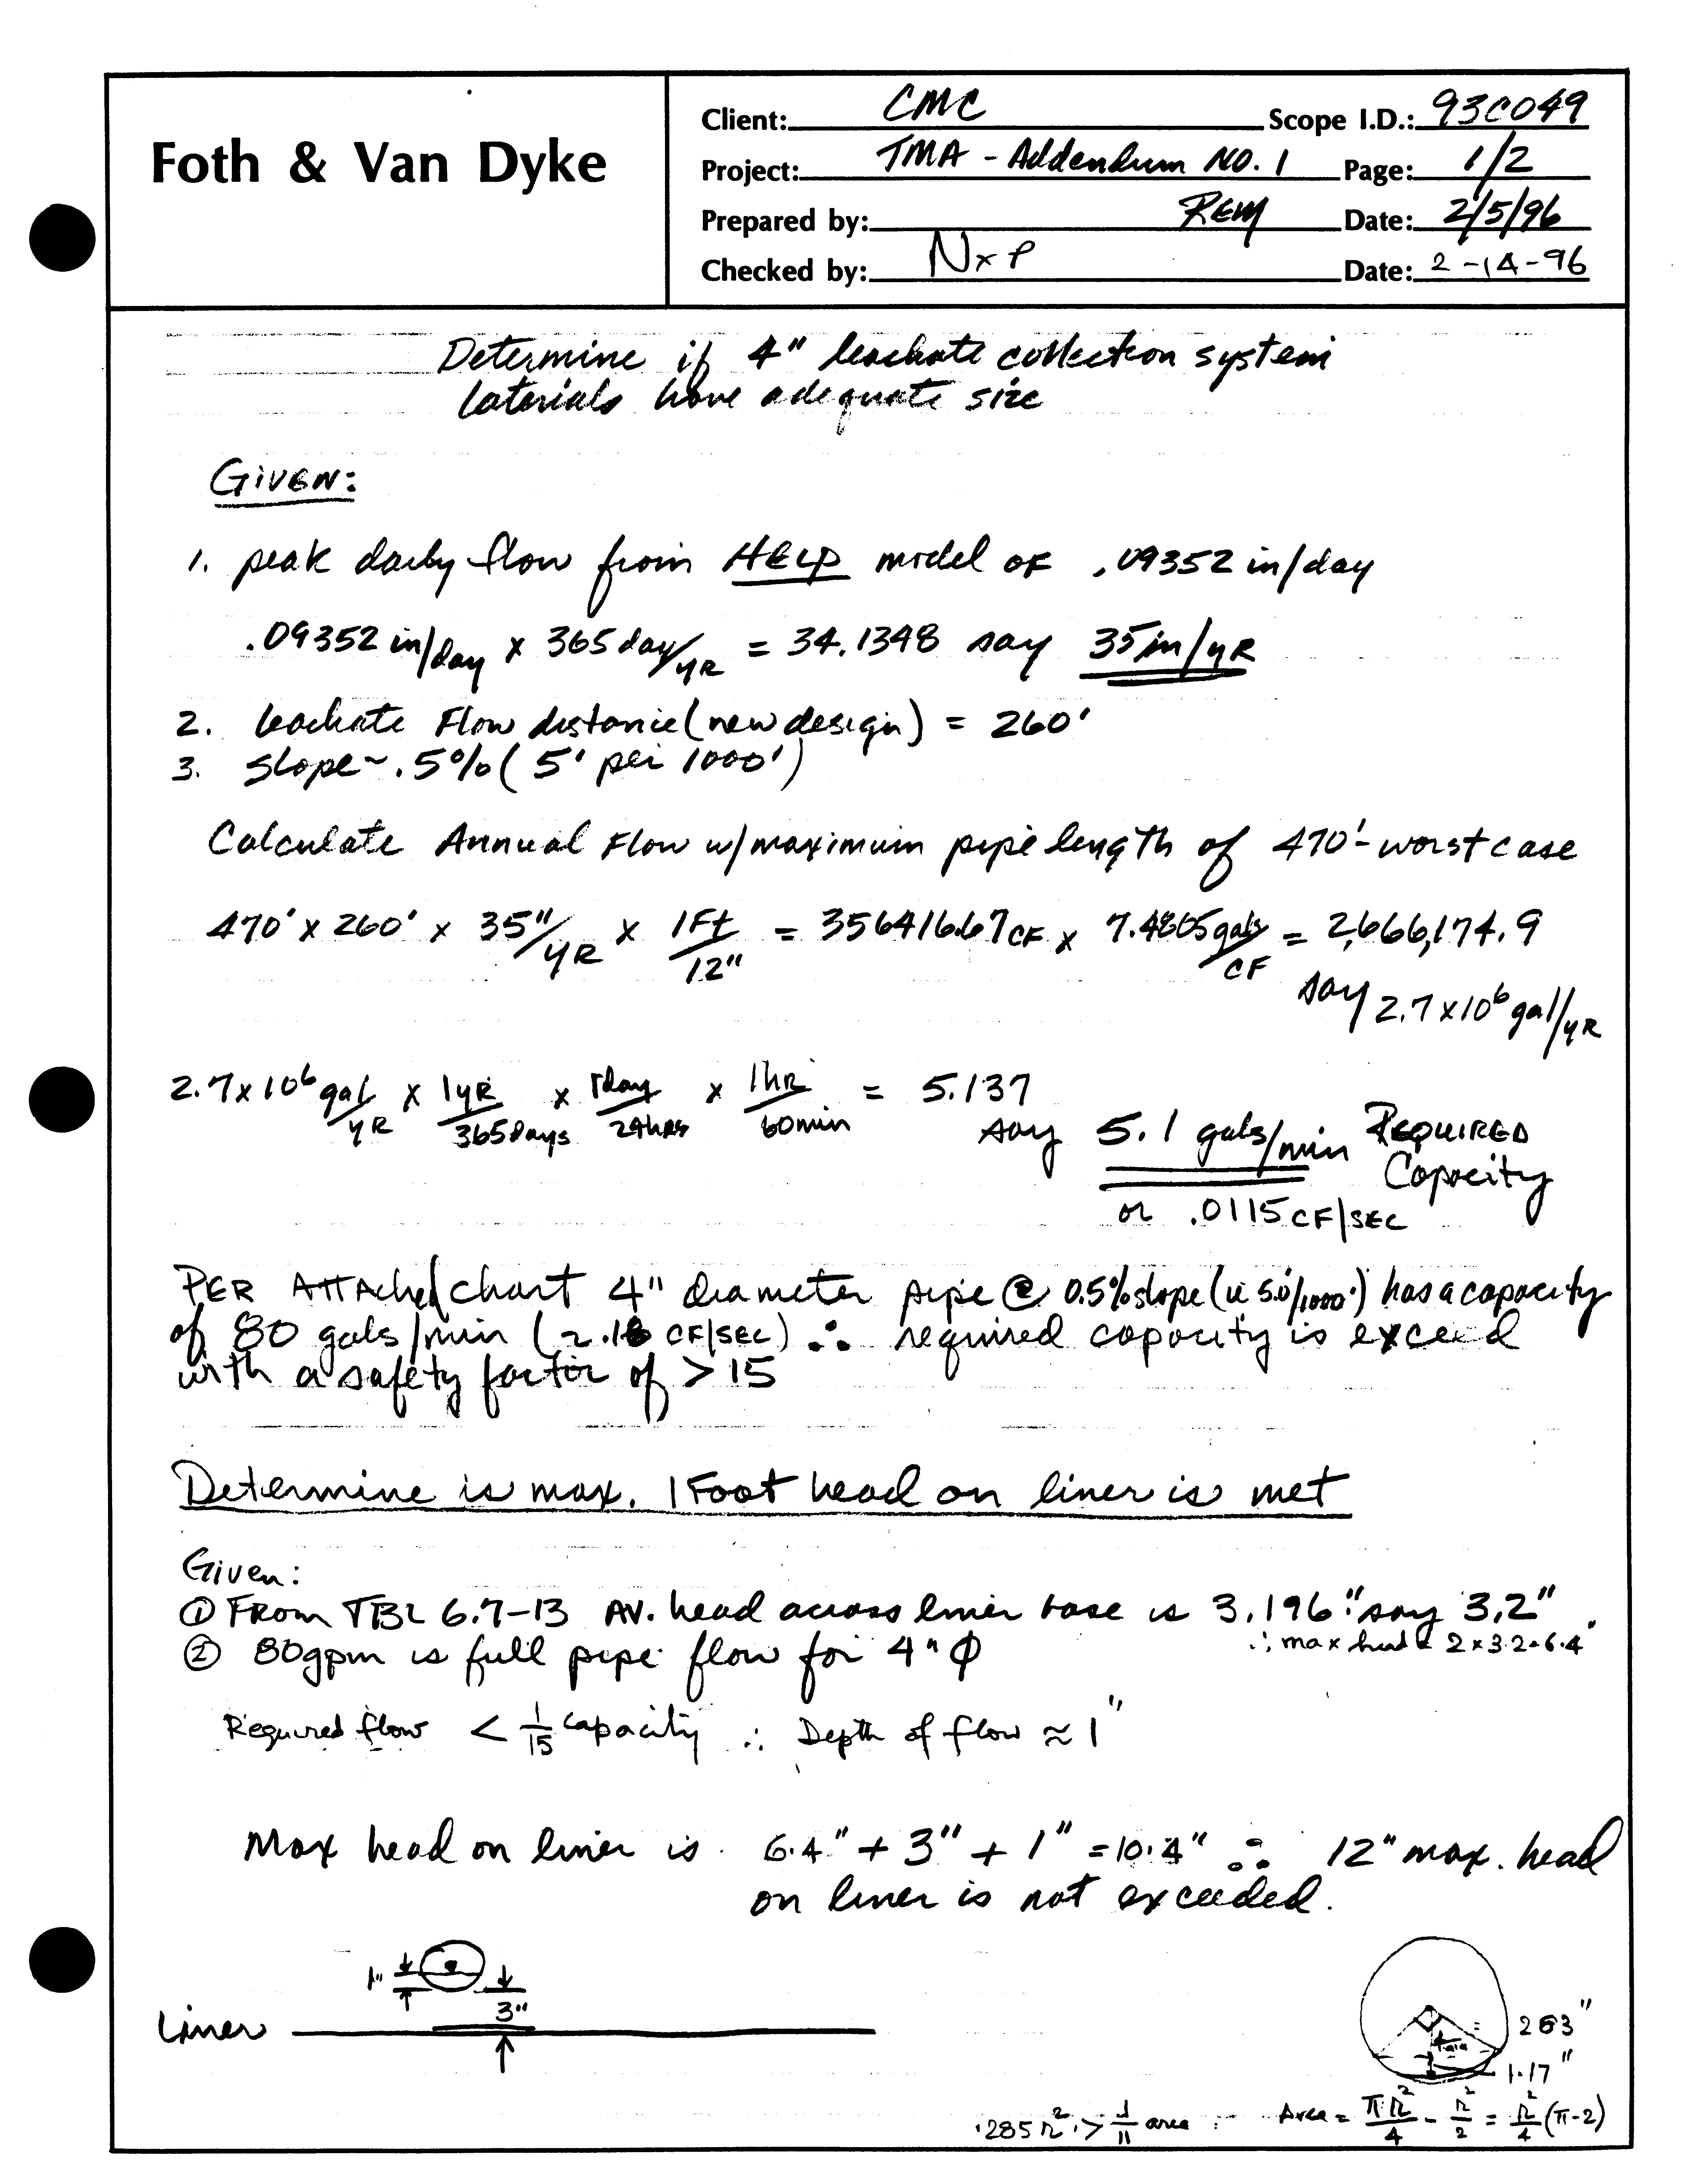 Foth & Van Dyke
Client: CMC Scope I.D.: 93C049
Project: TMA - Addendum No. 1 Page: 1/2
Prepared by: REM Date: 2/5/96
Checked by: NxP Date: 2-14-96
Determine if 4" leachate collection system
laterials have adequate size
GIVEN:
1. peak daily flow from HELP model of .09352 in/day
.09352 in/day x 365 day/yR = 34.1348 say 35 in/yR
2. leachate Flow distance (new design) = 260'
3. slope ~ .5% ( 5' per 1000')
Calculate Annual Flow w/maximum pipe length of 470'- worst case
470' x 260' x 35"/yR x 1Ft/12" = 356416.67 CF x 7.4805 gals/CF = 2,666,174.9
say 2.7 x 10^6 gal/yR
2.7 x 10^6 gal/yR x 1yR/365days x 1day/24hrs x 1hr/60min = 5.137
say 5.1 gals/min REQUIRED
Capacity
or .0115 CF/SEC
PER ATTAched chart 4" diameter pipe @ 0.5% slope (ie 5.0'/1000') has a capacity
of 80 gals/min (2.18 CF/SEC) ∴ required capacity is exceed
with a safety factor of > 15
Determine is max. 1 Foot head on liner is met
Given:
① FROM TBL 6.7-13 AV. head across liner base is 3.196" say 3.2"
∴ max head = 2 x 3.2 = 6.4"
② 80gpm is full pipe flow for 4" Φ
Required flow < 1/15 capacity ∴ Depth of flow ≈ 1"
Max head on liner is 6.4" + 3" + 1" = 10.4" ∴ 12" max. head
on liner is not exceeded.
1"
3"
Liner
2.83"
1.17"
.285 r² > 1/11 area
Area = πr²/4 - r²/2 = r²/4 (π-2)